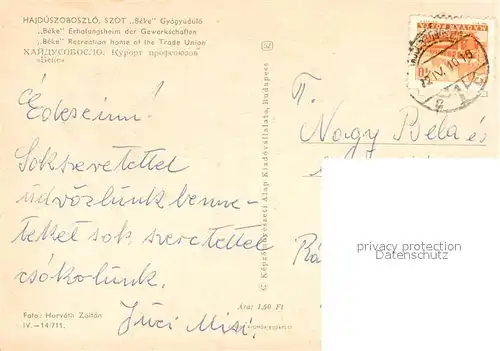 HAJDÚSZOBOSZLÓ, SZOT „Béke" Gyógyüdülő
„Béke" Erholungsheim der Gewerkschaften
„Béke" Recreation home of the Trade Union
ХАЙДУСОБОСЛО. Курорт профсоюзов
«Веке»
Édeseim!
Sok szeretettel
üdvözlünk benne-
teket sok szeretettel
csókolunk.
Juci Misi.
Foto: Horváth Zoltán
IV.—14.711.
Ára: 1.50 Ft
Képzőművészeti Alap Kiadóvállalata, Budapest
52
T.
Nagy Béla és
privacy protection
Datenschutz